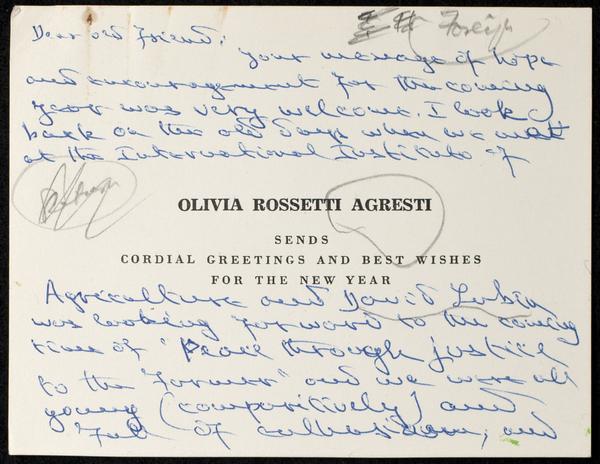 Foreign
Dear old Friend:
Your message of hope
and encouragement for the coming
year was very welcome. I look
back on the old days when we met
at the International Institute of
OLIVIA ROSSETTI AGRESTI
SENDS
CORDIAL GREETINGS AND BEST WISHES
FOR THE NEW YEAR
Agriculture and David Lubin
was looking forward to the coming
time of "Peace through justice
to the farmer" and we were all
young (comparitively) and
full of enthusiasm, and